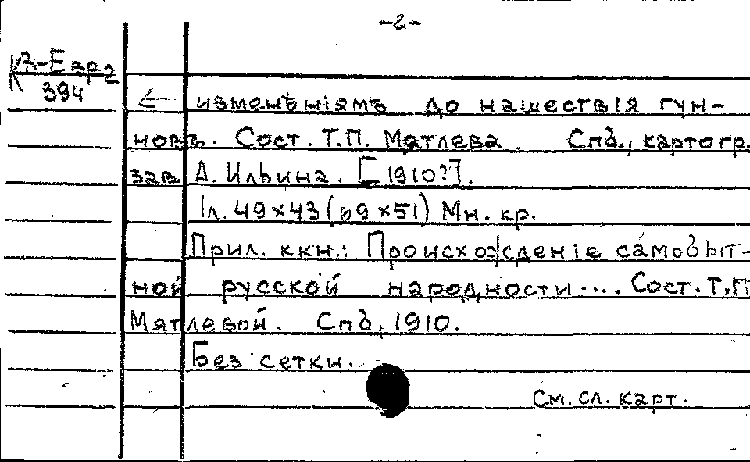 -2-
К2-Евр 2
394
← измѣненіямъ до нашествія гун-
новъ. Сост. Т.П. Мятлева. Спб., картогр.
зав. А. Ильина. [1910?].
1л. 49×43 (59×51) Мн. кр.
Прил. к кн.: Происхожденіе самобыт-
ной русской народности.... Сост. Т.П.
Мятлевой. Спб, 1910.
Без сетки.
См. сл. карт.